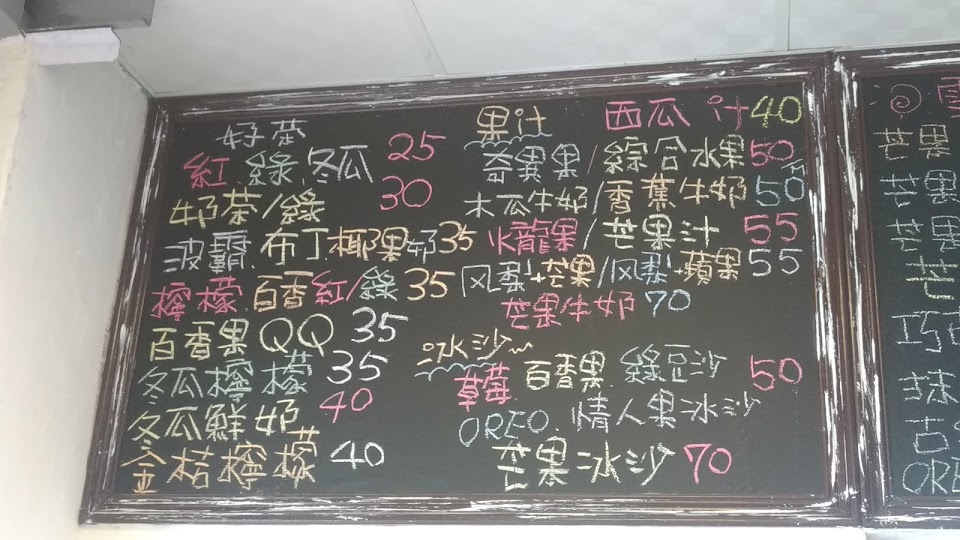 好茶
紅.綠.冬瓜 25
奶茶/綠 30
波霸.布丁.椰果奶35
檸檬.百香紅/綠 35
百香果QQ 35
冬瓜檸檬 35
冬瓜鮮奶 40
金桔檸檬 40
果汁
西瓜汁40
奇異果/綜合水果50
木瓜牛奶/香蕉牛奶50
火龍果/芒果汁 55
风梨+芒果/风梨+蘋果55
芒果牛奶 70
冰沙~
草莓.百香果.綠豆沙 50
OREO.情人果冰沙
芒果冰沙 70
芒果
芒果
芒果
芒
巧
抹
古
ORE